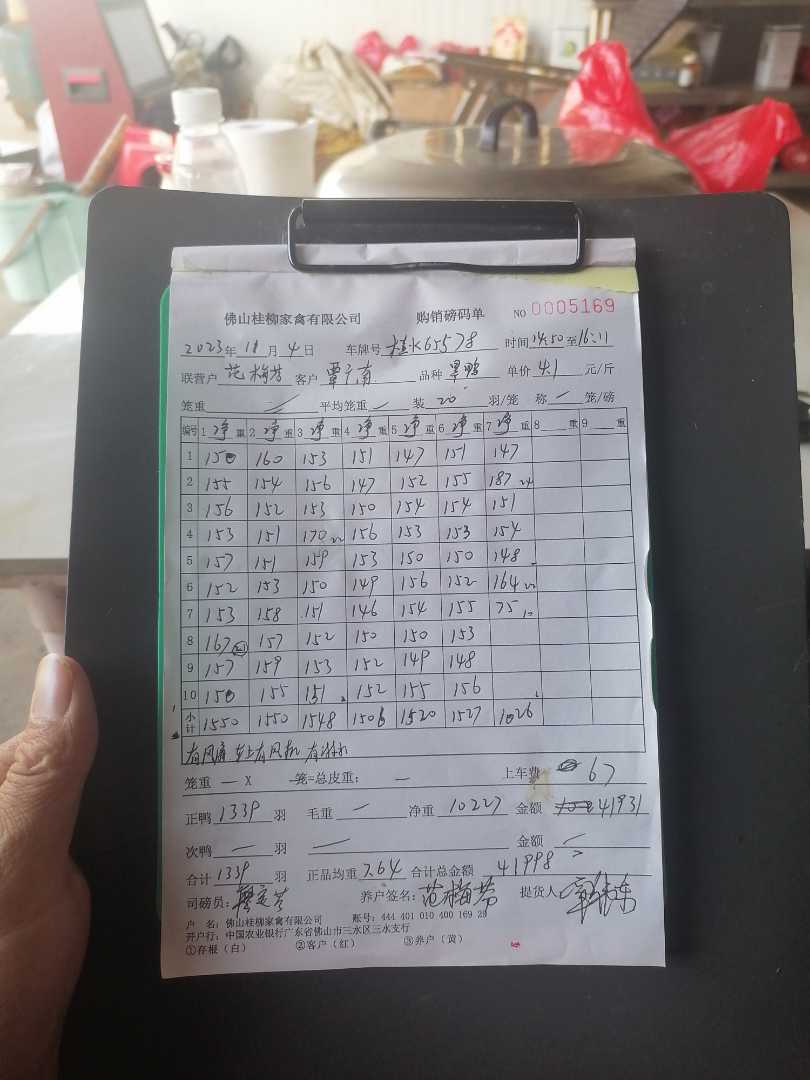 佛山桂柳家禽有限公司 购销磅码单 NO 0005169
2023年 11月 4日 车牌号 桂K65578 时间 14:50 至 16:11
联营户 范梅芳 客户 覃广南 品种 黑鸭 单价 4.1 元/斤
笼重 平均笼重 一 装 20 羽/笼 称 一 笼/磅
编号 1 净 重 2 净 重 3 净 重 4 净 重 5 净 重 6 净 重 7 净 重 8 重 9 重
1 150 160 153 151 147 151 147
2 155 154 156 147 152 155 187 24
3 156 152 153 150 154 154 151
4 153 151 170 22 156 153 153 154
5 157 151 159 153 150 150 148
6 152 153 150 149 156 152 164 22
7 153 158 151 146 154 155 75 10
8 167 157 152 150 150 153
9 157 159 153 152 149 148
10 150 155 151 152 155 156
小计 1550 1550 1548 1506 1520 1527 1026
有风扇 车上有风机 有淋水
笼重 一 X 一笼=总皮重: 一 上车费 67
正鸭 1339 羽 毛重 一 净重 10227 金额 41931
次鸭 一 羽 一 金额 一
合计 1339 羽 正品均重 7.64 合计总金额 41998
司磅员: 养户签名: 范梅芳 提货人:
户 名: 佛山桂柳家禽有限公司 账号: 444 401 010 400 169 29
开户行: 中国农业银行广东省佛山市三水区三水支行
①存根（白） ②客户（红） ③养户（黄）